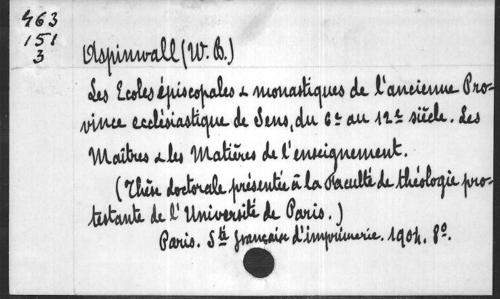 463
151
3
Aspinwall (W. B.)
Les Ecoles épiscopales & monastiques de l'ancienne Pro-
vince ecclésiastique de Sens, du 6e au 12e siècle. Les
Maîtres & les Matières de l'enseignement.
(Thèse doctorale présentée à la Faculté de théologie pro-
testante de l'Université de Paris.)
Paris. Sté française d'imprimerie. 1904. 8o.